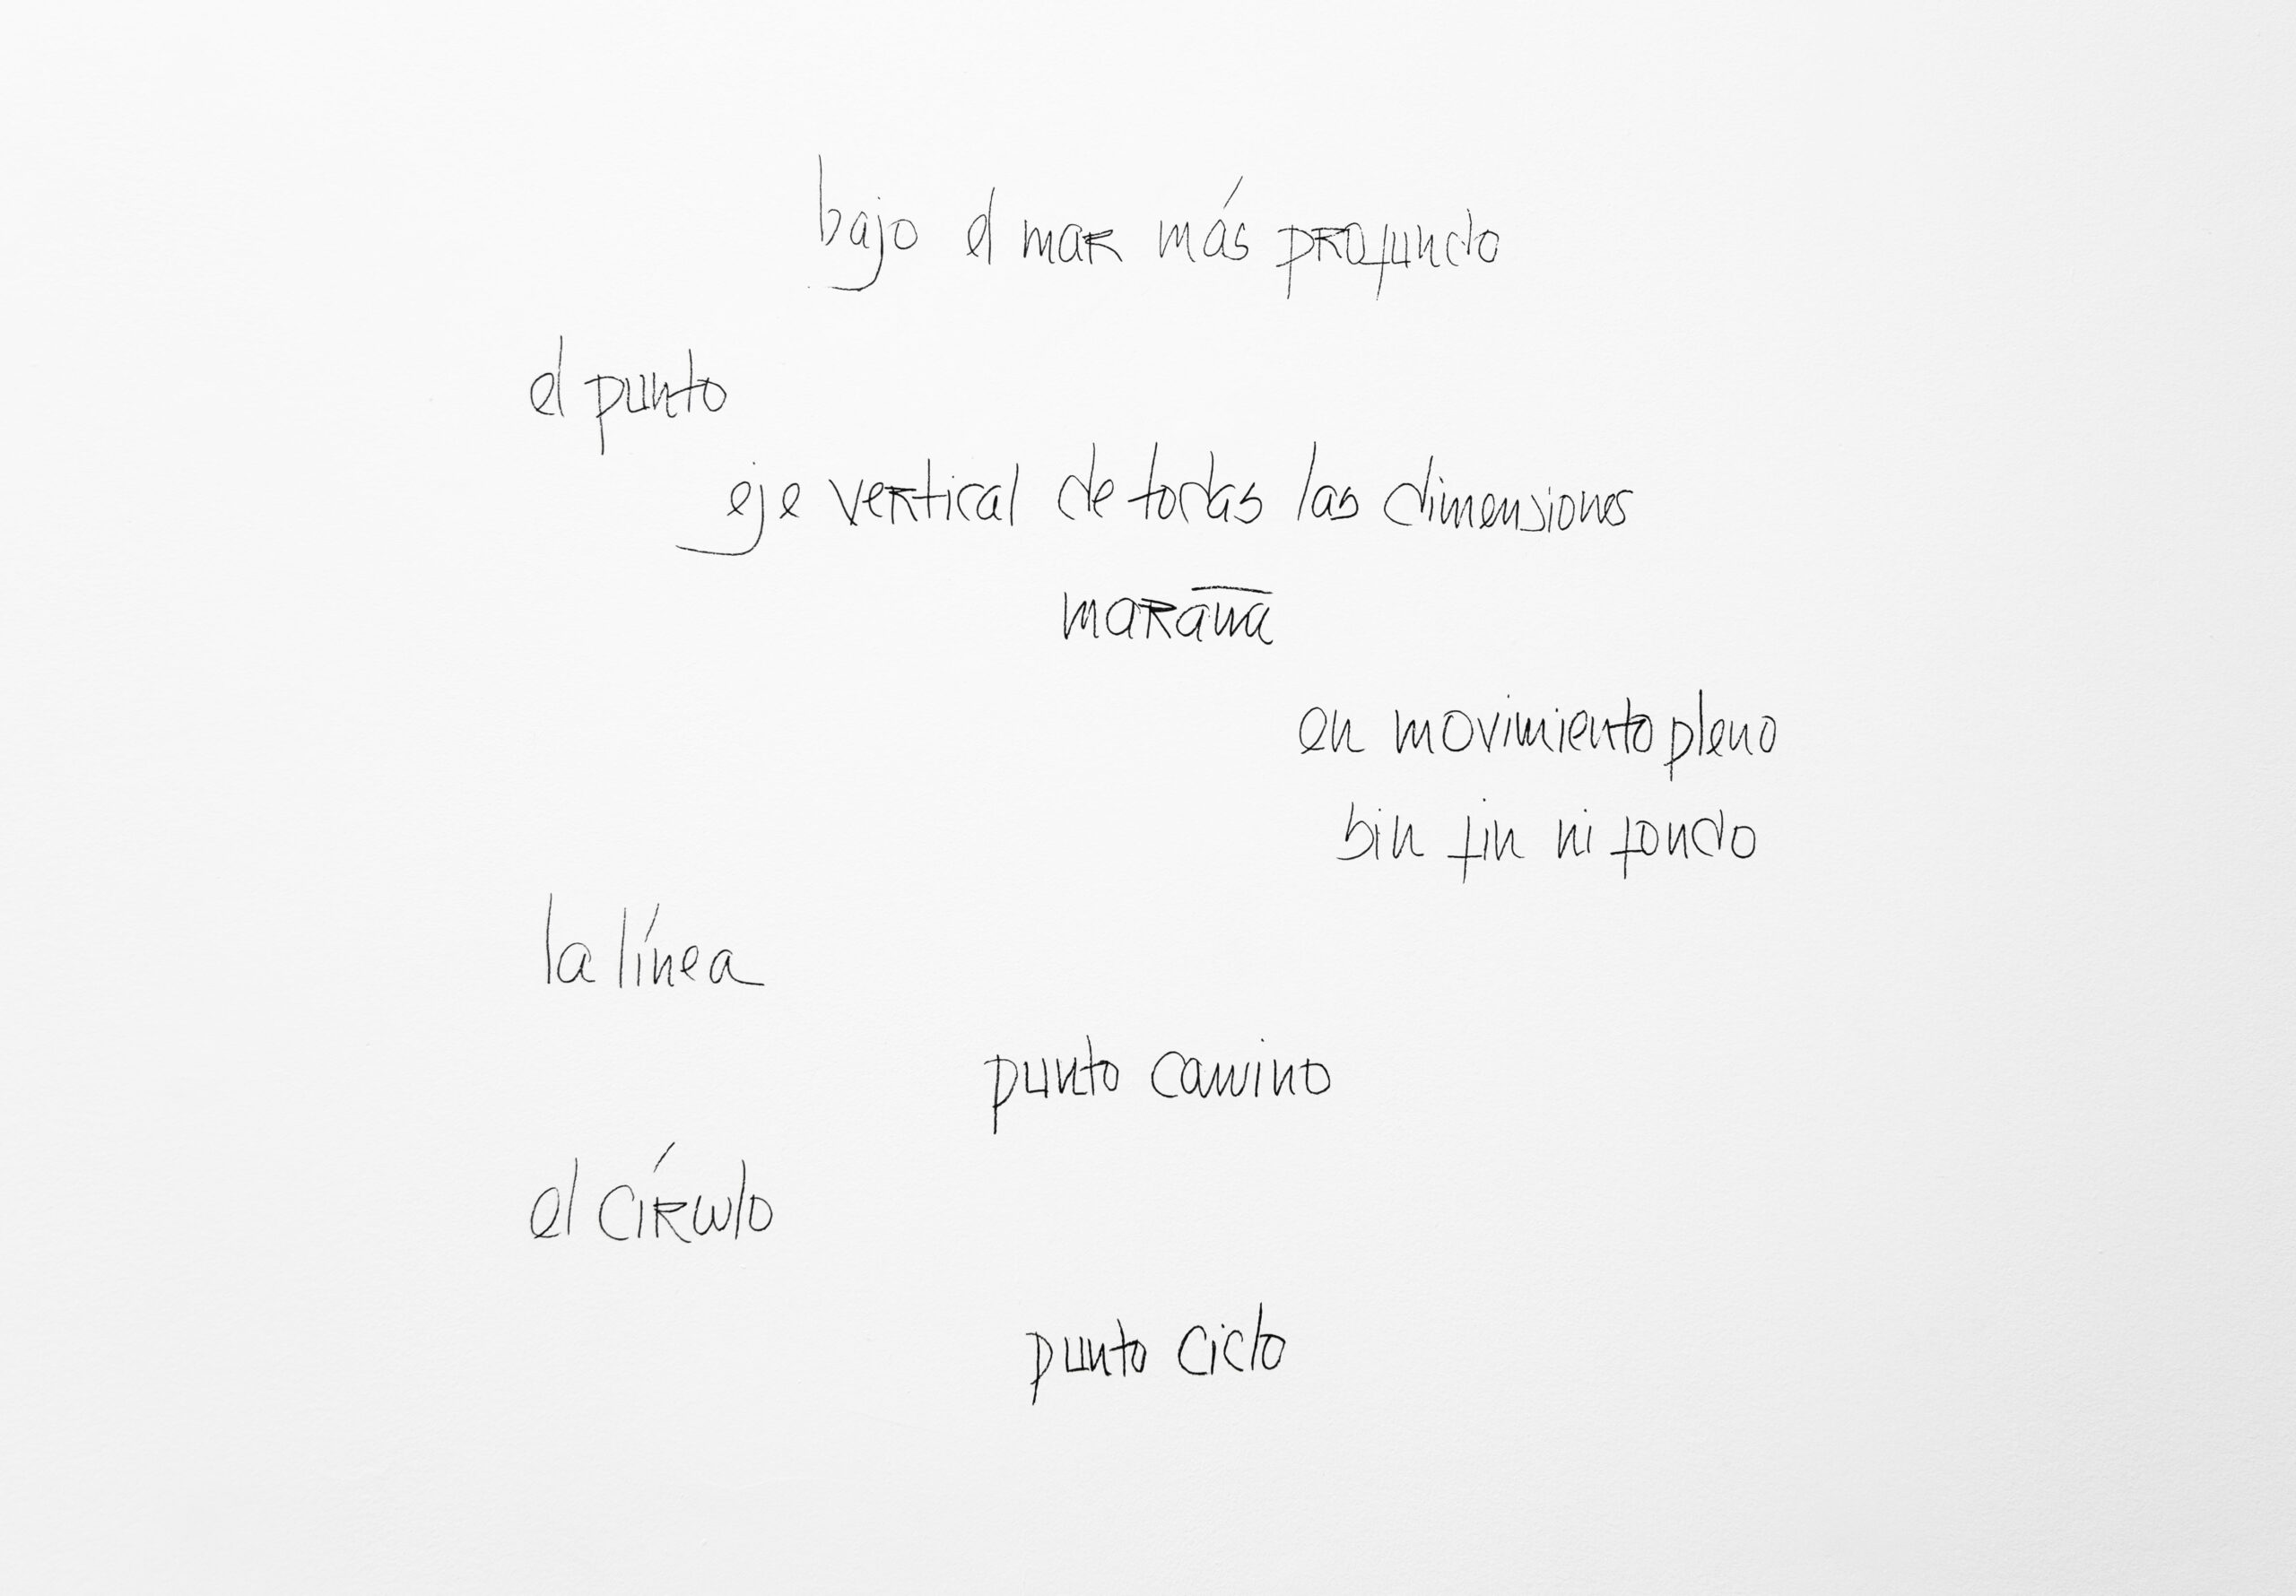 bajo el mar más profundo
el punto
eje vertical de todas las dimensiones
maraña
en movimiento pleno
sin fin ni fondo
la línea
punto camino
el círculo
punto ciclo